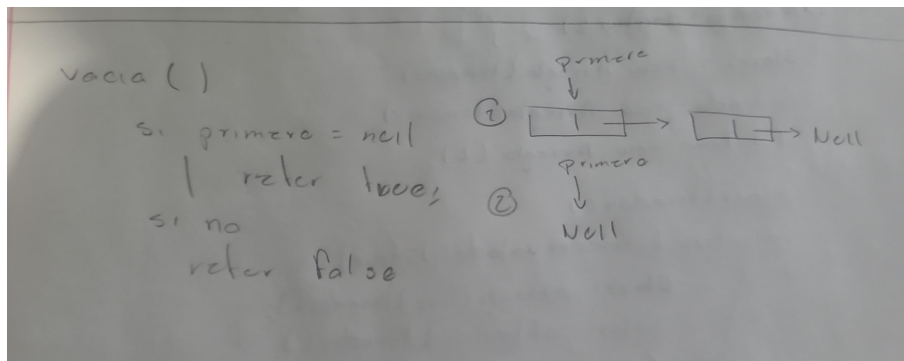 vacia ( )
si primero = null
reter true;
si no
reter false
primero
①
Null
primero
②
Null